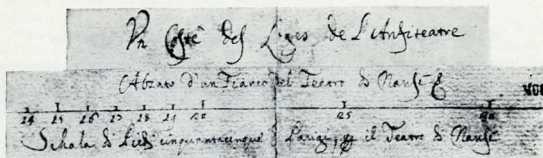 Vn Costé des Loges de L'Anfiteatre
d'un Fianco del Teatro di Nansi
24 25 26 27 28 29
Schala di Piedi cinquantacinque di Parigi, il Teatro di Nansi